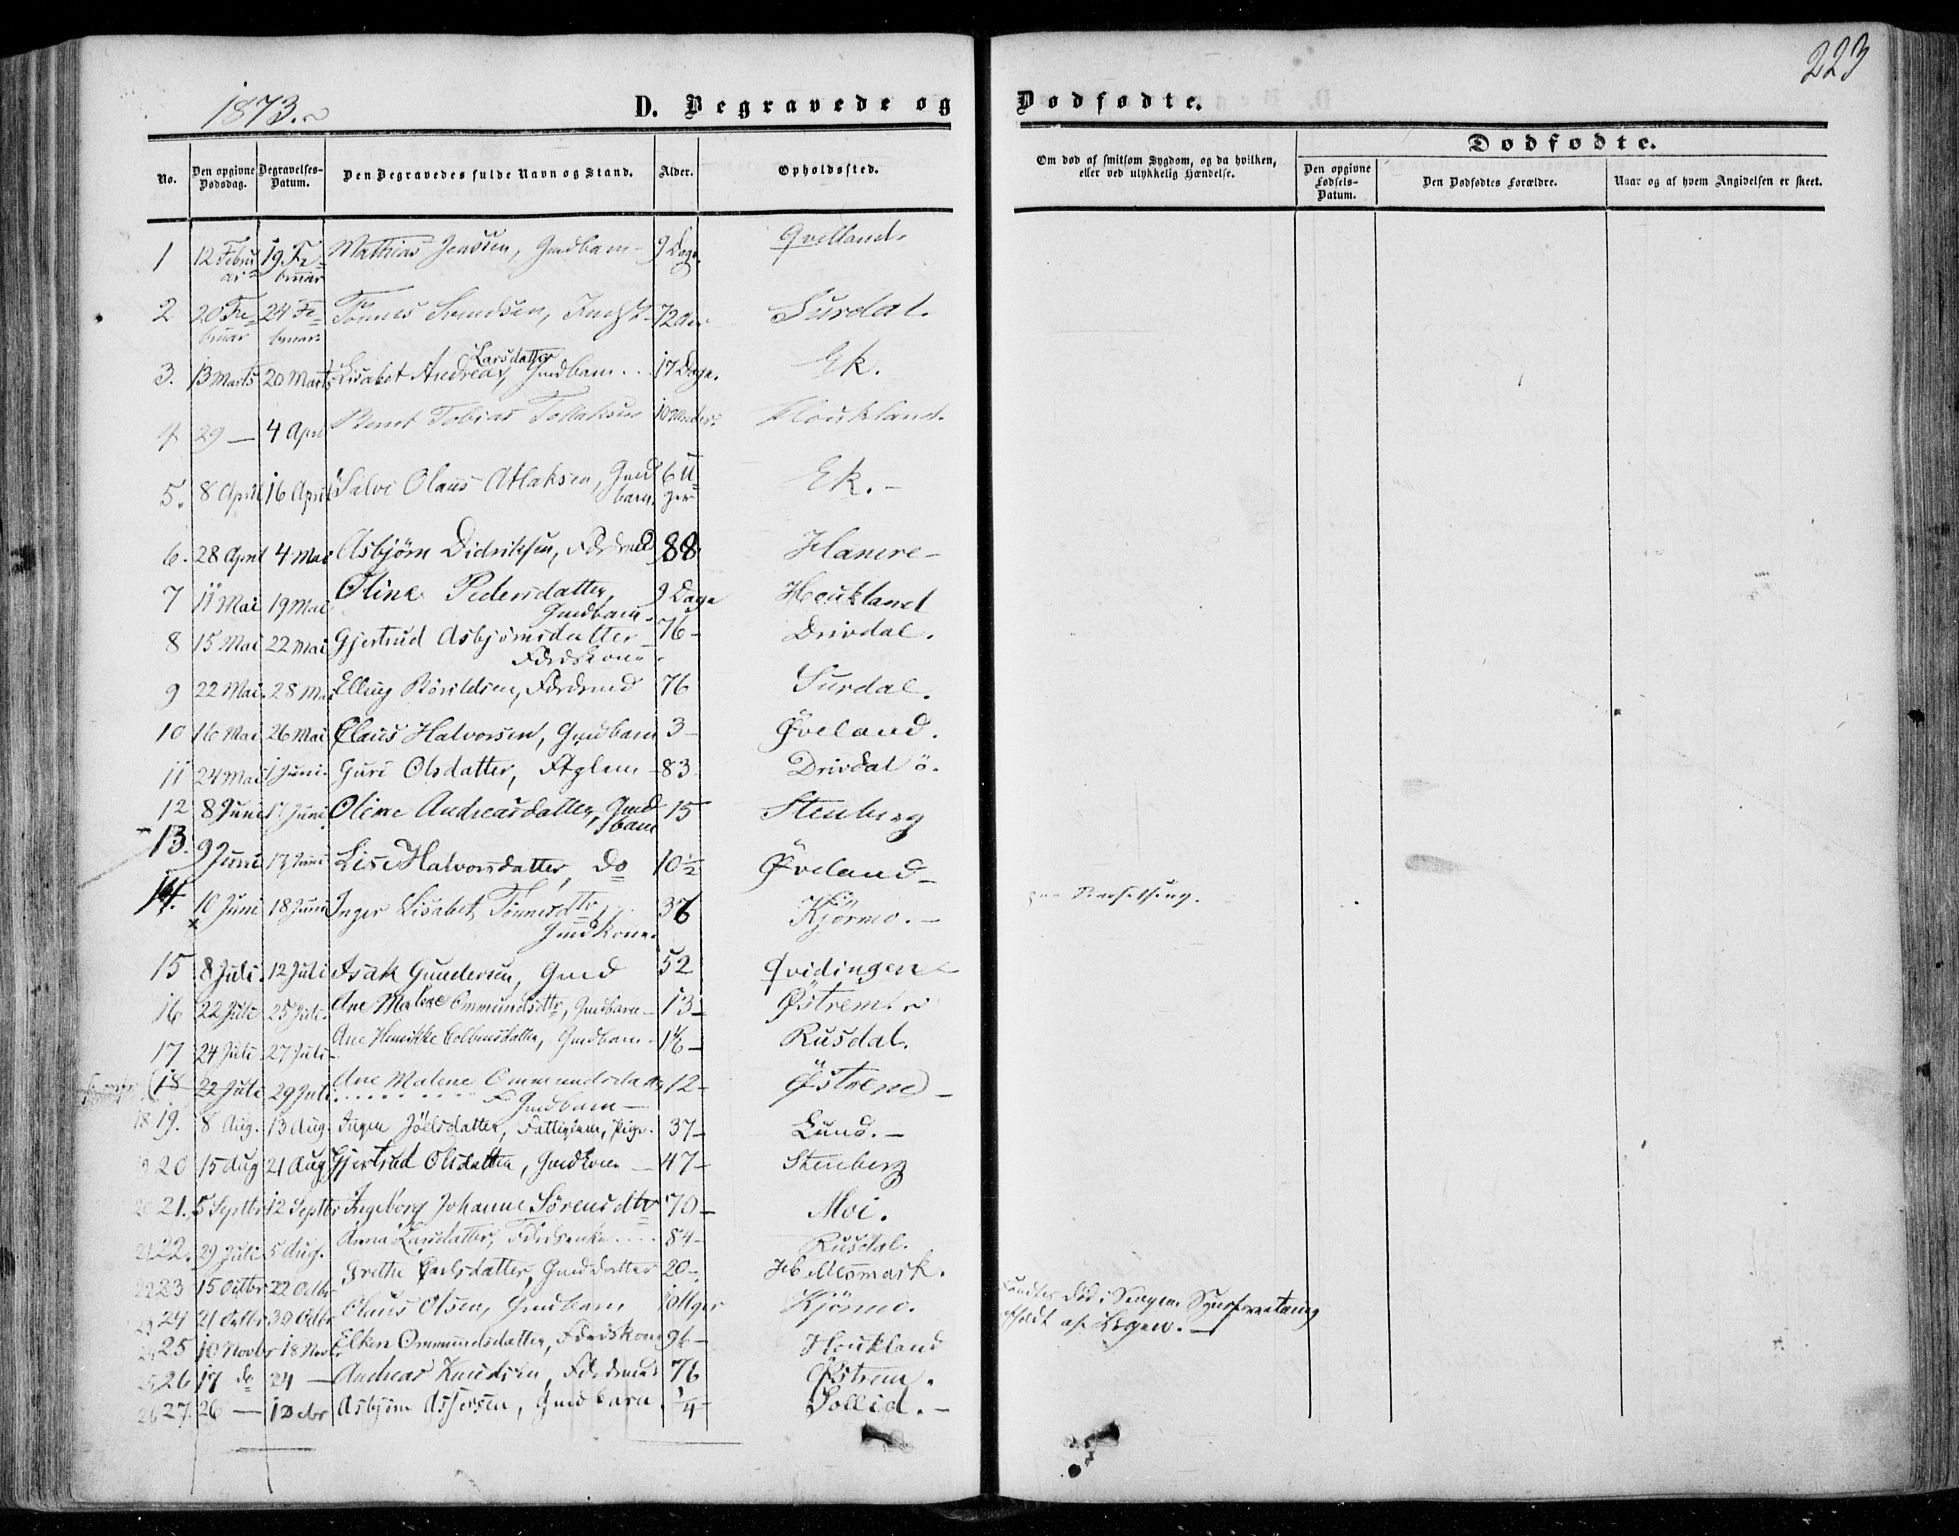 223
1873.
D. Begravede og Dødfødte.
No. Den opgivne Dødsdag. Begravelses-Datum. Den Begravedes fulde Navn og Stand. Alder. Opholdssted.
Om død af smitsom Sygdom, og da hvilken, eller ved ulykkelig Hændelse.
Dødfødte.
Den opgivne Fødsels-Datum. Den Dødfødtes Forældre. Naar og af hvem Angivelsen er skeet.
1 12 Februar 19 Februar Mathias Jenssen, Gmdbarn 9 Dage Qvelland.
2 20 Februar 24 Februar Tønnes Svendsen, 72 Aar Surdal.
3. 13 Marts 20 Marts Lisabet Andrea Larsdatter, Gmdbarn 17 Dage. Ek.
4 29 — 4 April Bernt Tobias Tollaksen 10 Houkland.
5. 8 April 16 April Salve Olaus Atlaksen, Gmdbarn. 6 Uger Ek. -
6. 28 April 4 Mai Asbjørn Didriksen, Fdrdmd 88 Hamre -
7 11 Mai 19 Mai Oline Pedersdatter, Gmdbarn. 9 Dage Houkland
8 15 Mai 22 Mai Gjertrud Asbjørnsdatter Fdrdskone. 76 - Drivdal.
9 22 Mai 28 Mai Elling Fdrdmd 76 Surdal.
10 16 Mai 26 Mai Claus Halvorsen, Gmdbarn 3 - Øveland.
11 24 Mai 1 Juni Guri Olsdatter, Ftglem 83 Drivdal ö.
12 8 Juni 17 Juni Oline Andreasdatter, Gmdbarn 15 Stenberg
13. 9 Juni 17 Juni Lise Halvorsdatter, do 10½ Øveland -
14. 10 Juni 18 Juni Inger Lisabet Tønnesdtr, Gmdkone. 36 Kjørmo. -
15 8 Juli 12 Juli Isak Gundersen, Gmd 52 Qvidingen
16 22 Juli 25 Juli Ane Malene Ommundsdtr, Gmdbarn - 13 - Østrem.
17. 24 Juli 27 Juli Ane Henrikke Colbensdatter, Gmdbarn - Rusdal.
18 22 Juli 29 Juli Ane Malene Ommundsdatter Gmdbarn - 12 - Østrem -
18 19. 8 Aug. 13 Aug. Inger Joëlsdatter, Fattiglem, Pige. 37 - Lund. -
19 20 15 Aug 21 Aug Gjertrud Olsdatter, Gmdkone - 47 - Stenberg
20 21. 5 Septbr 12 Septbr Ingeborg Johanne Sørensdtr 70 - Moi.
21 22. 29 Juli 5 Aug. Anna Larsdatter, Fdrdsenke 84 - Rusdal.
22 23 15 Octbr 22 Octbr Grethe Carlsdatter, Gmdsdatter 20 -. Hb Mesmark.
23 24 21 Octbr 30 Octbr Olaus Olsen, Gmdbarn 10 Uger Kjörmo. Fundtes død i Sengen. Synsforretning afholdt af Lægen. -
24 25 10 Novbr 18 Novbr Elken Ommundsdatter, Fdrdskone 96 - Houkland
25 26 17 do 24 — Andreas Knudsen, Fdrdsmand 76 Østrem.
26 27. 26 — 1 Debr Asbjørn Assersen, Gmdbarn. ¼ Sollid. -